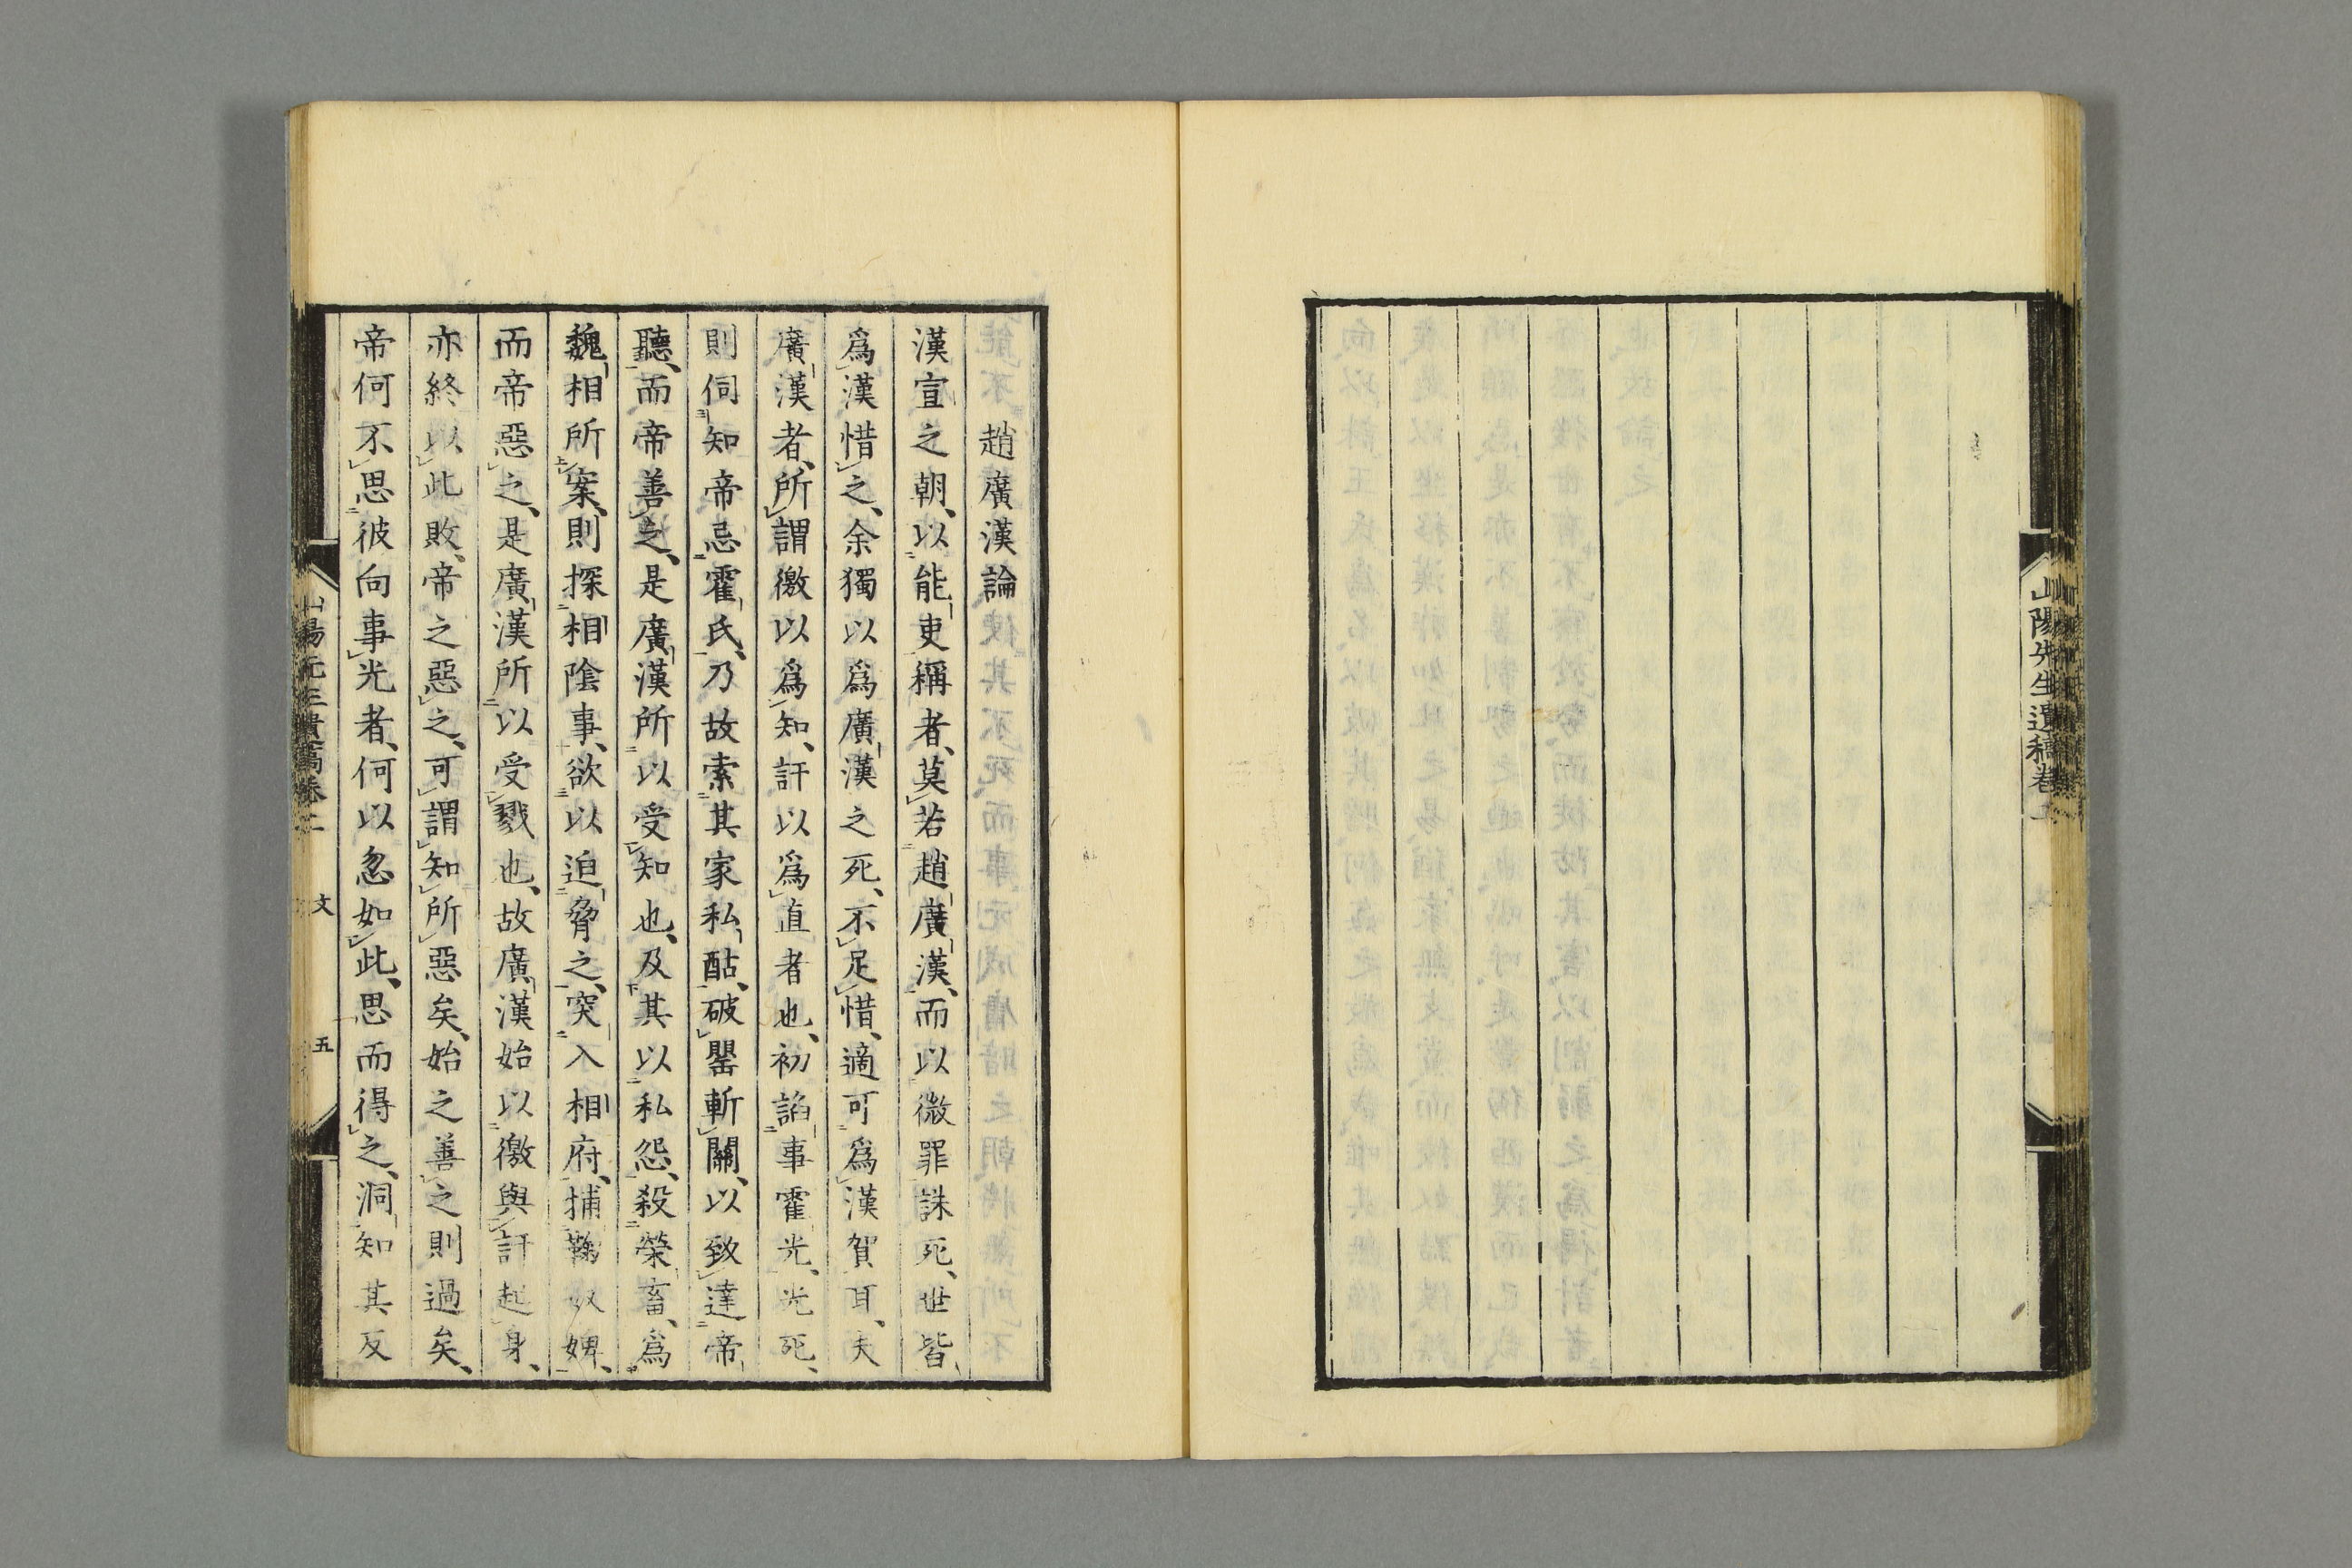 山陽先生遺稿卷二
趙廣漢論
漢宣之朝、以能吏稱者、莫若趙廣漢、而以微罪誅死、世皆
爲漢惜之、余獨以爲廣漢之死、不足惜、適可爲漢賀耳、夫
廣漢者、所謂徼以爲知、訐以爲直者也、初諂事霍光、光死、
則伺知帝忌霍氏、乃故索其家私酤、破罌斬關、以致達帝
聽、而帝善之、是廣漢所以受知也、及其以私怨、殺榮畜、爲
魏相所案、則探相陰事、欲以迫脅之、突入相府、捕鞫奴婢、
而帝惡之、是廣漢所以受戮也、故廣漢始以徼與訐起身、
亦終以此敗、帝之惡之、可謂知所惡矣、始之善之則過矣、
帝何不思彼向事光者、何以忽如此、思而得之、洞知其反
山陽先生遺稿卷二 文 五